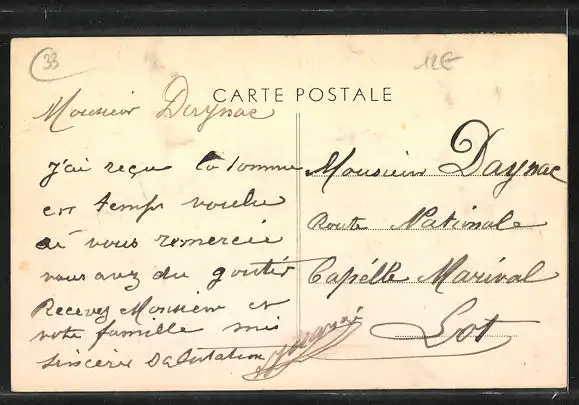 33
12E
CARTE POSTALE
Monsieur Daynac
j'ai reçu la somme
en temps voulu
ai vous remercie
vous avez du goutér
Recevez Monsieur et
votre famille mes
sincères Salutation
Monsieur Daynac
Route National
Capélle Marival
Lot